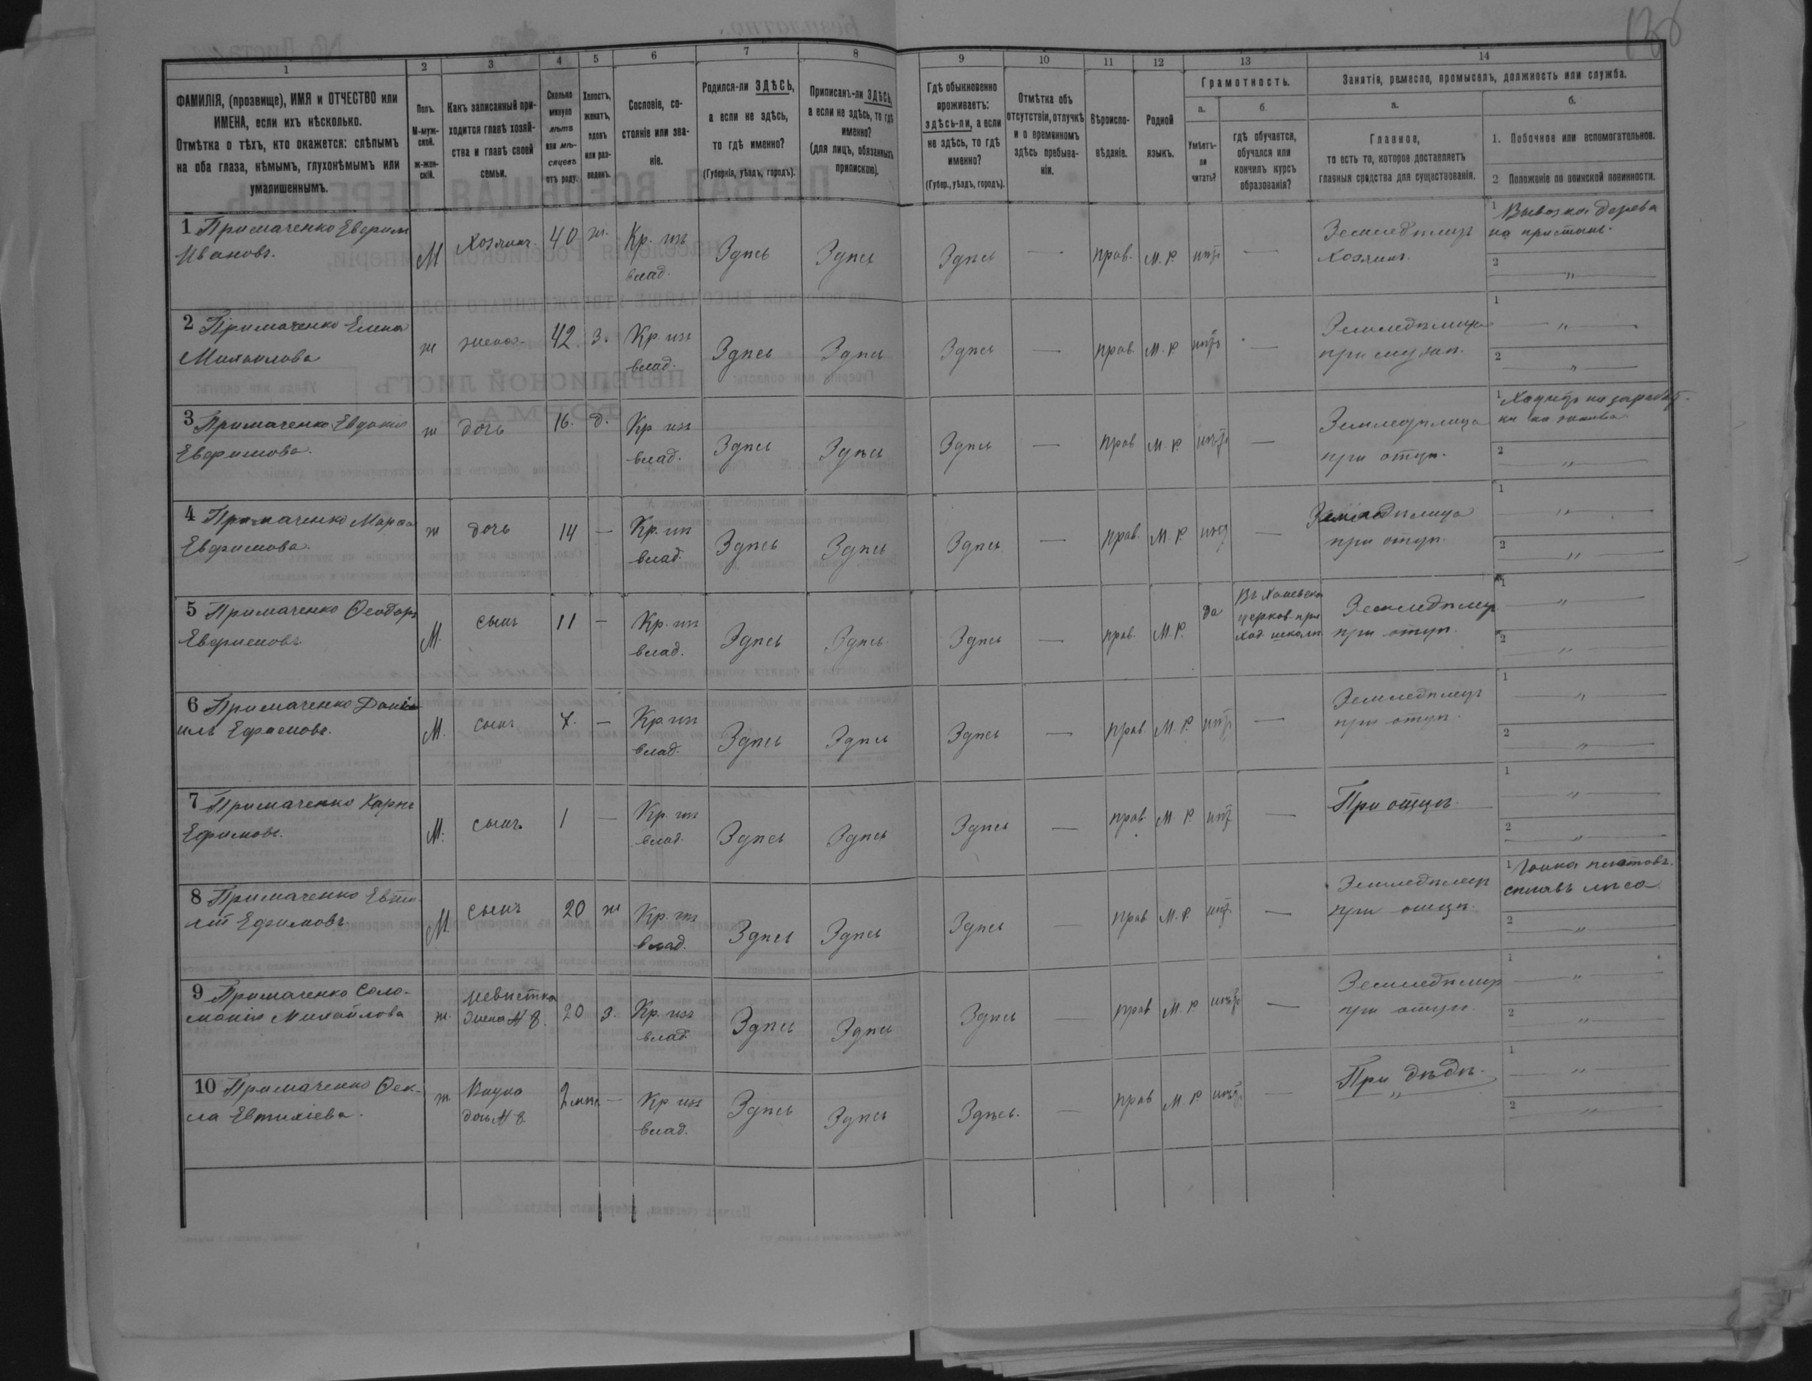 1
2
3
4
5
6
7
8
9
10
11
12
13
14
ФАМИЛІЯ, (прозвище), ИМЯ и ОТЧЕСТВО или
ИМЕНА, если ихъ нѣсколько.
Отмѣтка о тѣхъ, кто окажется: слѣпымъ
на оба глаза, нѣмымъ, глухонѣмымъ или
умалишеннымъ.
Полъ.
М-муж-
ской.
Ж-жен-
скій.
Какъ записанный при-
ходится главѣ хозяй-
ства и главѣ своей
семьи.
Сколько
минуло
лѣтъ
или мѣ-
сяцевъ
отъ роду.
Холостъ,
женатъ,
вдовъ
или раз-
веденъ.
Сословіе, со-
стояніе или зва-
ніе.
Родился-ли ЗДѢСЬ,
а если не здѣсь,
то гдѣ именно?
(Губернія, уѣздъ, городъ).
Приписанъ-ли ЗДѢСЬ,
а если не здѣсь, то гдѣ
именно?
(для лицъ, обязанныхъ
припискою).
Гдѣ обыкновенно
проживаетъ:
здѣсь-ли, а если
не здѣсь, то гдѣ
именно?
(Губер., уѣздъ, городъ).
Отмѣтка объ
отсутствіи, отлучкѣ
и о временномъ
здѣсь пребыва-
ніи.
Вѣроиспо-
вѣданіе.
Родной
языкъ.
Грамотность.
а.
Умѣетъ-
ли
читать?
б.
Гдѣ обучается,
обучался или
кончилъ курсъ
образованія?
Занятія, ремесло, промыселъ, должность или служба.
а.
Главное,
то есть то, которое доставляетъ
главныя средства для существованія.
б.
1. Побочное или вспомогательное.
2 Положеніе по воинской повинности.
1 Примаченко Евфимъ
Ивановъ.
М
Хозяинъ.
40
ж.
Кр. изъ
влад.
Здѣсь
Здѣсь
Здѣсь
—
прав.
М. Р.
нѣтъ
—
Земледѣлецъ
Хозяинъ.
1 Вывозка дерева
на пристань.
2 „
2 Примаченко Елена
Михаилова
ж
жена
42
з.
Кр. изъ
влад.
Здѣсь
Здѣсь
Здѣсь
—
прав.
М. Р
нѣтъ
—
Земледѣлица
при мужѣ.
1 „
2 „
3 Примаченко Евдокія
Евфимова.
ж
дочь
16.
д.
Кр изъ
влад.
Здѣсь
Здѣсь
Здѣсь
—
прав
М. Р.
нѣтъ
—
Земледѣлица
при отцѣ.
1 Ходитъ на заработ-
ки
2 „
4 Примаченко Марфа
Евфимова.
ж
дочь
14
—
Кр. изъ
влад.
Здѣсь
Здѣсь
Здѣсь
—
прав.
М. Р.
нѣтъ
—
Земледѣлица
при отцѣ.
1 „
2 „
5 Примаченко Ѳеодоръ
Евфимовъ
М.
сынъ
11
—
Кр. изъ
влад.
Здѣсь
Здѣсь.
Здѣсь
—
прав.
М. Р.
да
церков. при
ход. школѣ
Земледѣлецъ
при отцѣ.
1 „
2 „
6 Примаченко Дані
илъ Ефимовъ.
М.
сынъ
7.
—
Кр. изъ
влад.
Здѣсь
Здѣсь
Здѣсь
—
прав.
М. Р.
нѣтъ
—
Земледѣлецъ
при отцѣ.
1 „
2 „
7 Примаченко Карпъ
Ефимовъ.
М.
сынъ.
1
—
Кр. изъ
влад.
Здѣсь
Здѣсь
Здѣсь
—
прав.
М. Р.
нѣтъ.
—
При отцѣ.
1 „
2 „
8 Примаченко Евти-
хій Ефимовъ
М.
сынъ
20
ж
Кр. изъ
влад.
Здѣсь
Здѣсь
Здѣсь
—
прав
М. Р
нѣтъ.
—
Земледѣлецъ
при отцѣ.
1 Гонка плотовъ.
сплавъ лѣса
2 „
9 Примаченко Соло-
монія Михайлова
ж.
невѣстка
жена № 8.
20
з.
Кр. изъ
влад
Здѣсь
Здѣсь
Здѣсь
—
прав
М. Р
нѣтъ
—
Земледѣлецъ
при отцѣ.
1 „
2 „
10 Примаченко Ѳек-
ла Евтихіева.
ж.
Внука
дочь № 8
2 мѣс.
—
Кр изъ
влад.
Здѣсь
Здѣсь
Здѣсь.
—
прав
М. Р
нѣтъ.
—
При дѣдѣ.
„
1 „
2 „